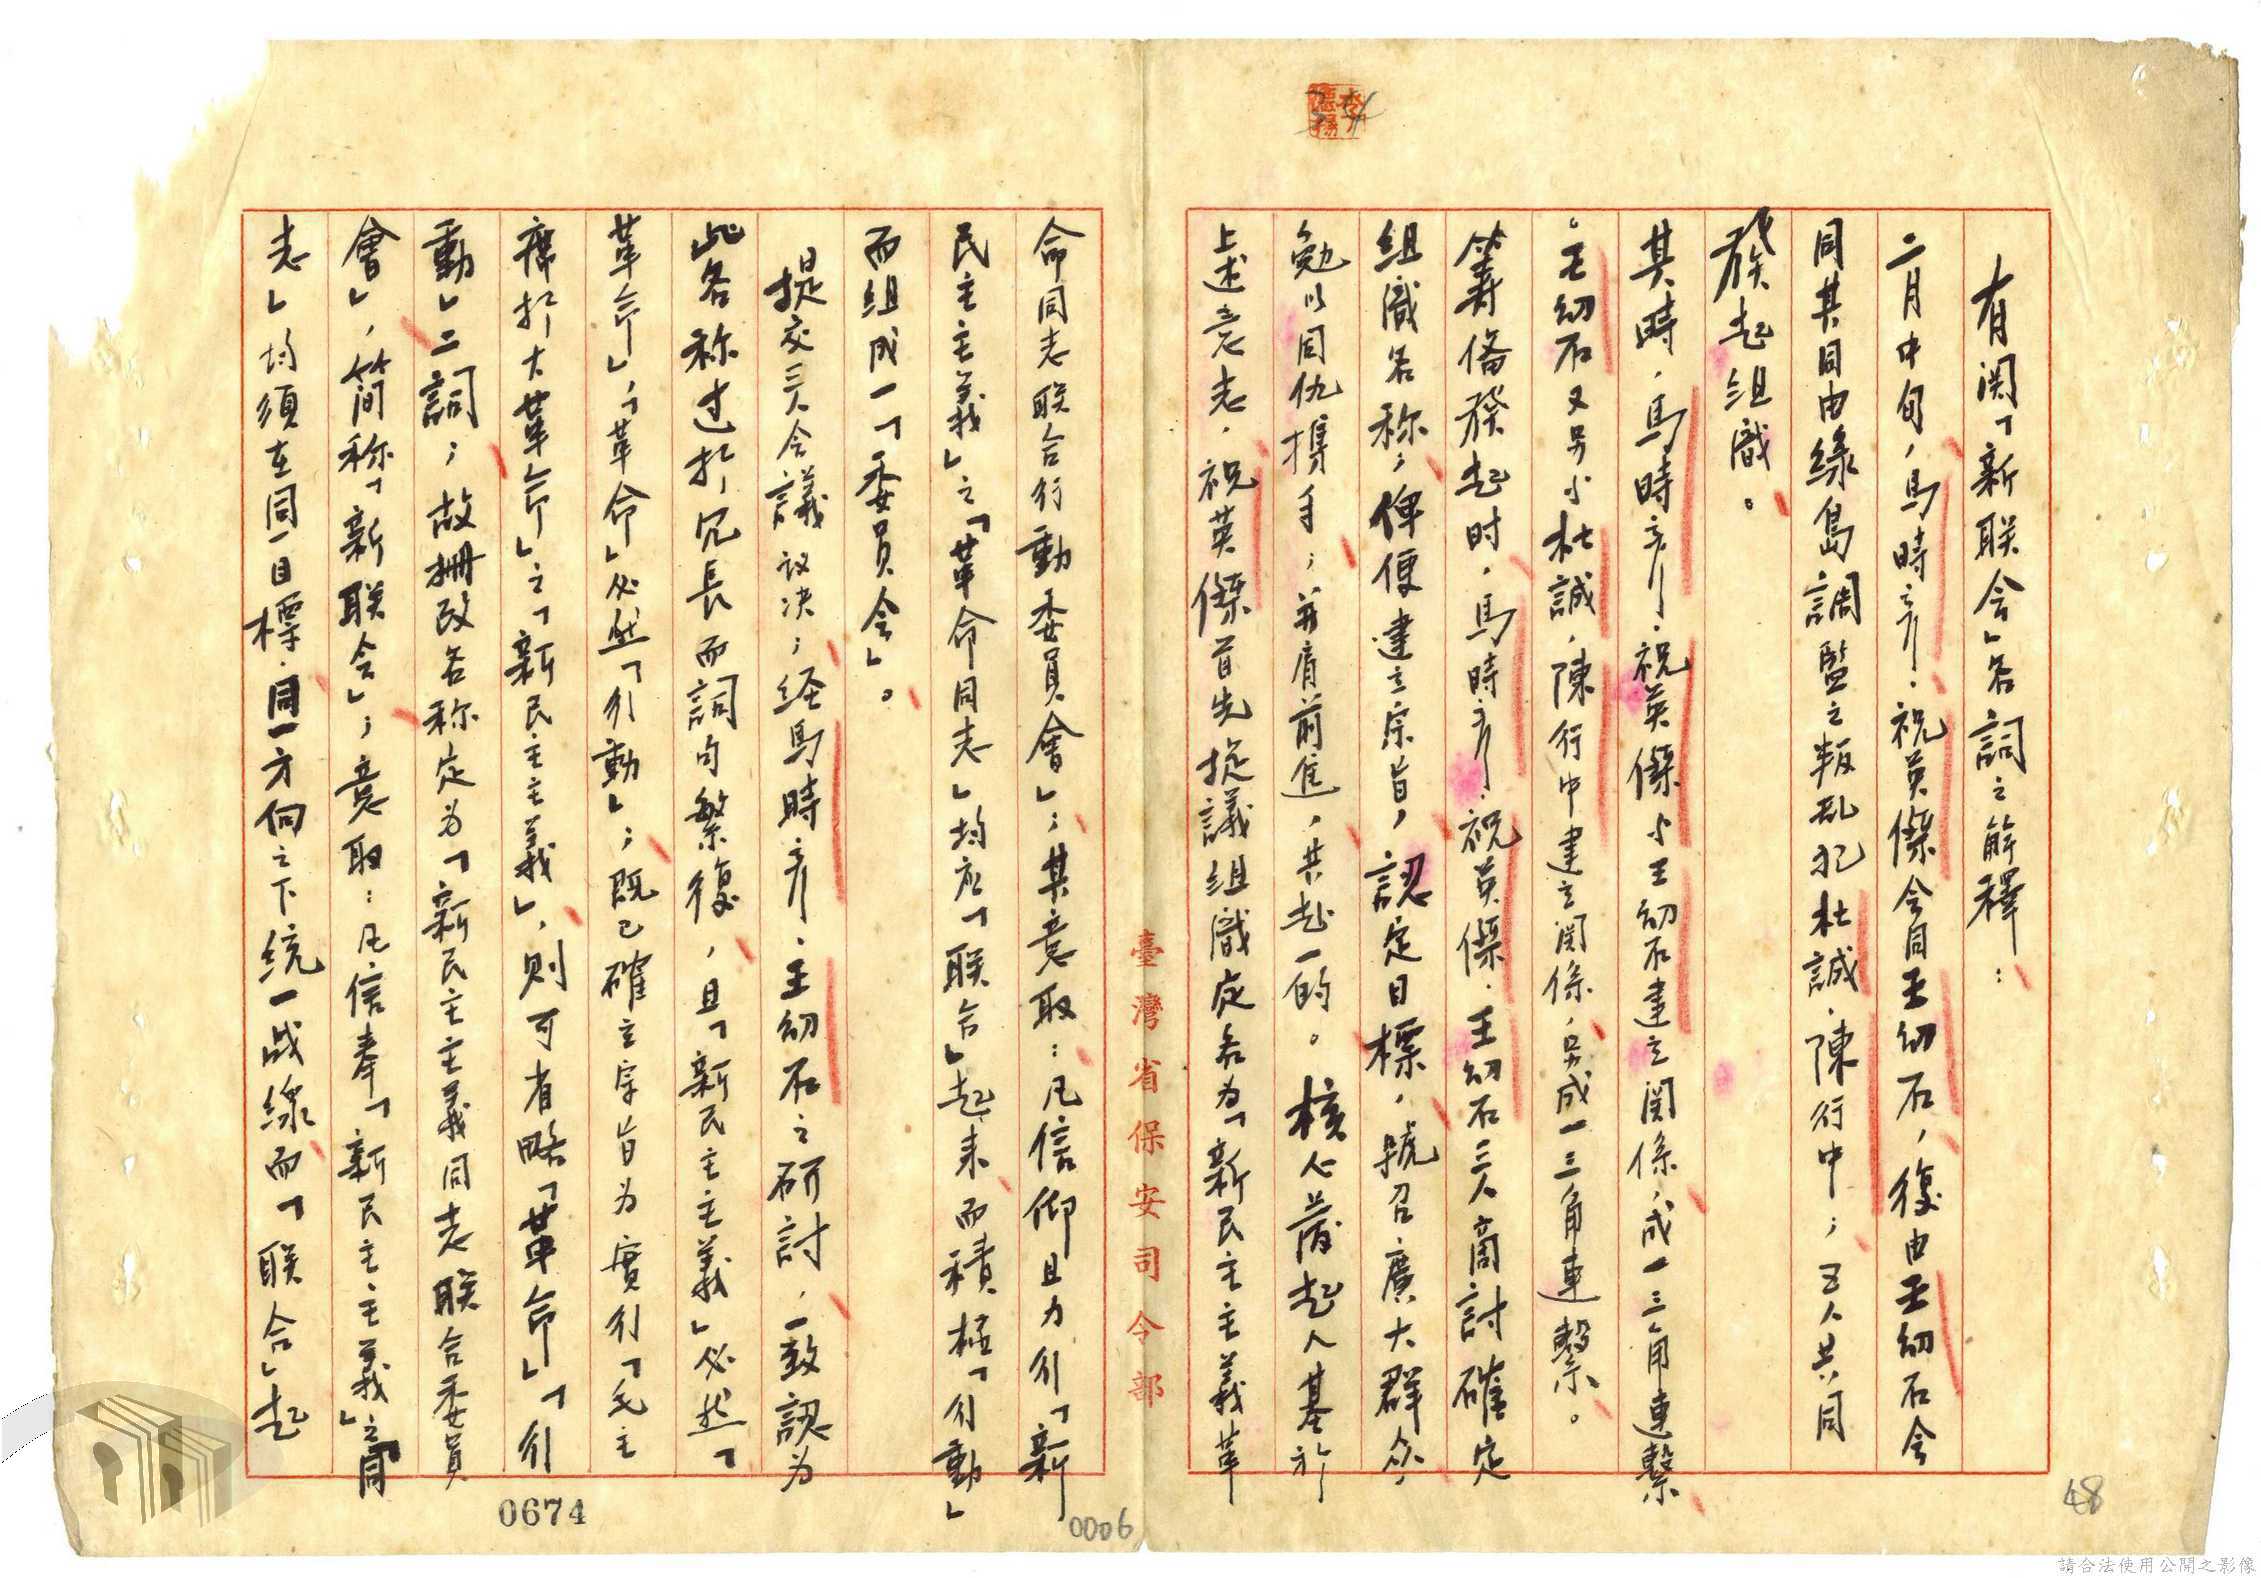 有関「新联会」名詞之解釋：
二月中旬，馬時彥、祝英傑会同王幼石，復由王幼石会
同其同由綠島調監之叛乱犯杜誠、陳行中；五人共同
發起組識。
其時，馬時彥、祝英傑与王幼石建立関係，成一三角連繫
，王幼石又另与杜誠、陳行中建立関係，另成一三角連繫。
籌備發起时，馬時彥、祝英傑、王幼石三人商討確定
組識名称，俾便建立宗旨，認定目標，號召廣大群众，
勉以同仇携手；并肩前進，共赴一的。核心發起人基於
上述意志，祝英傑首先提議組識定名為「新民主主義革
命同志联合行動委員會」；其意取：凡信仰且力行「新
民主主義」之「革命同志」均应「联合」起来而積極「行動」
而組成一「委員会」。
提交三人会議議決；経馬時彥、王幼石之研討，一致認为
此名称过於冗長而詞句繁復，且「新民主主義」必然「
革命」，「革命」必然「行動」；既已確立宗旨为實行「毛主
席於大革命」之「新民主主義」，则可省略「革命」「行
動」二詞；故刪改名称定为「新民主主義同志联合委員
會」，简称「新联会」；意取：凡信奉「新民主主義」之「同
志」均須在同一目標，同一方向之下統一战線而「联合」起
臺灣省保安司令部
0674
0006
48
請合法使用公開之影像